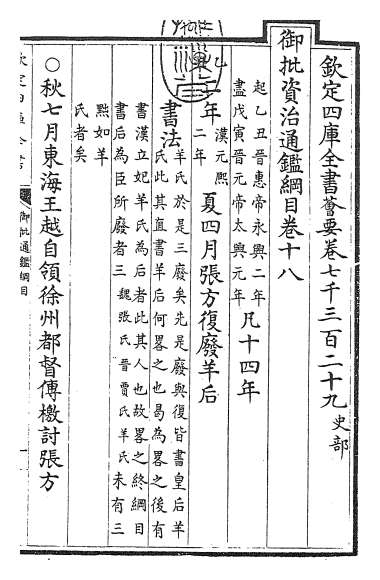 欽定四庫全書薈要卷七千三百二十九史部
御批資治通鑑綱目卷十八
起乙丑晉惠帝永興二年
盡戊寅晉元帝太興元年凡十四年
乙丑二年漢元熙二年夏四月張方復廢羊后
書法羊氏於是三廢矣先是廢與復皆書皇后羊
氏此其直書羊后何畧之也曷為畧之後有
書漢立妃羊氏為后者此其人也故畧之終綱目
書后為臣所廢者三魏張氏晉賈氏羊氏未有三
黜如羊
氏者矣
○秋七月東海王越自領徐州都督傳檄討張方
欽定四庫全書
御批通鑑綱目